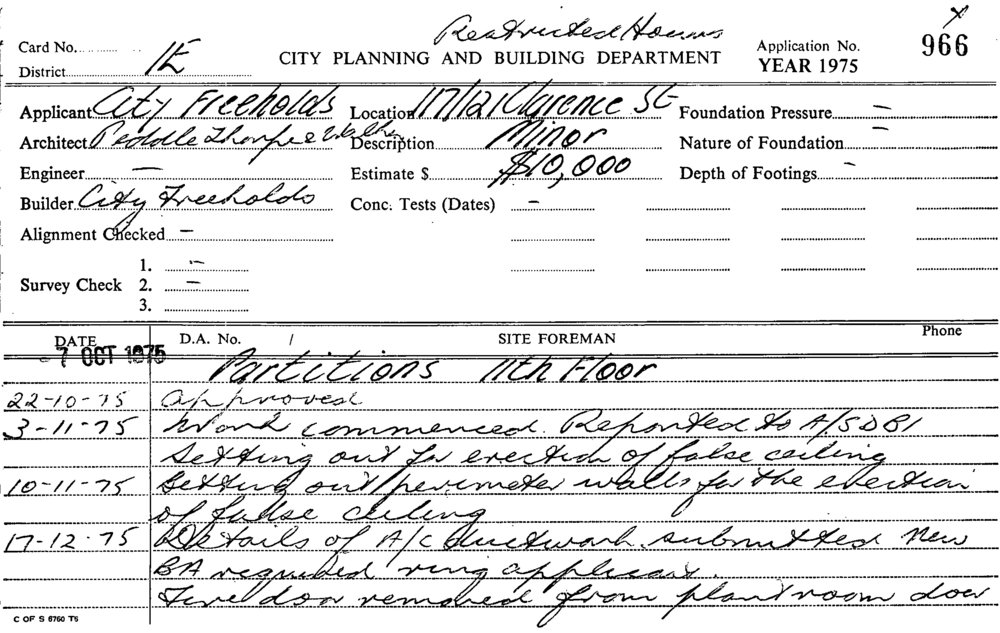 Restricted Hours
Card No. Application No. 966
District 1E CITY PLANNING AND BUILDING DEPARTMENT YEAR 1975
Applicant City Freeholds Location 117/121 Clarence St Foundation Pressure —
Architect Peddle Thorpe & Walker Description Minor Nature of Foundation —
Engineer — Estimate $ $10,000 Depth of Footings -
Builder City Freeholds Conc. Tests (Dates) -
Alignment Checked -
1. -
Survey Check 2. -
3.
DATE D.A. No. / SITE FOREMAN Phone
- 7 OCT 1975 Partitions 11th Floor
22-10-75 Approved
3-11-75 Work commenced. Reported to A/SDBI
Setting out for erection of false ceiling
10-11-75 Setting out perimeter walls for the erection
of false ceiling
17-12-75 Details of A/C ductwork submitted New
BA required ring applicant.
Fire door removed from plant room door
C OF S 6760 T6